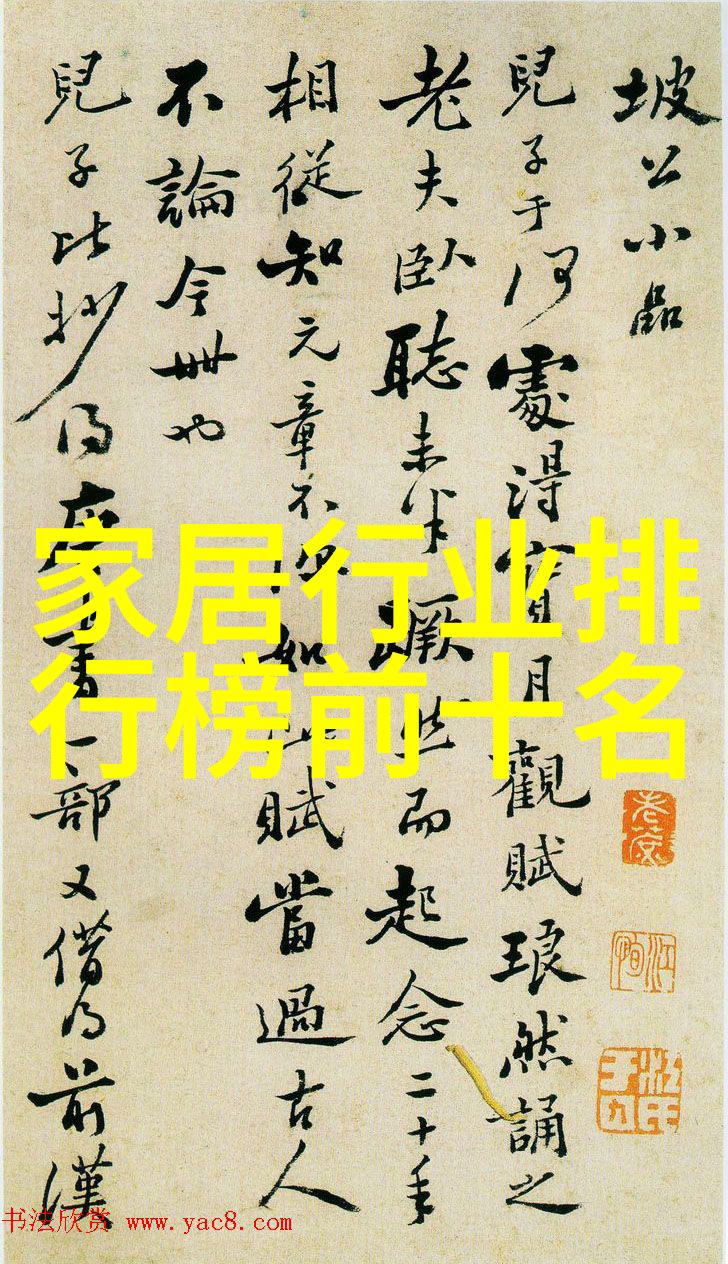 坡公小品
兒子于何處得寶月觀賦琅然誦之
老夫臥聽未半蹶然而起念二十年
相從知元章不如此賦當過古人
不論今世也
兒子比抄得唐書一部又借得前漢
家居行业排
行榜前十名
书法欣赏 www.yac8.com